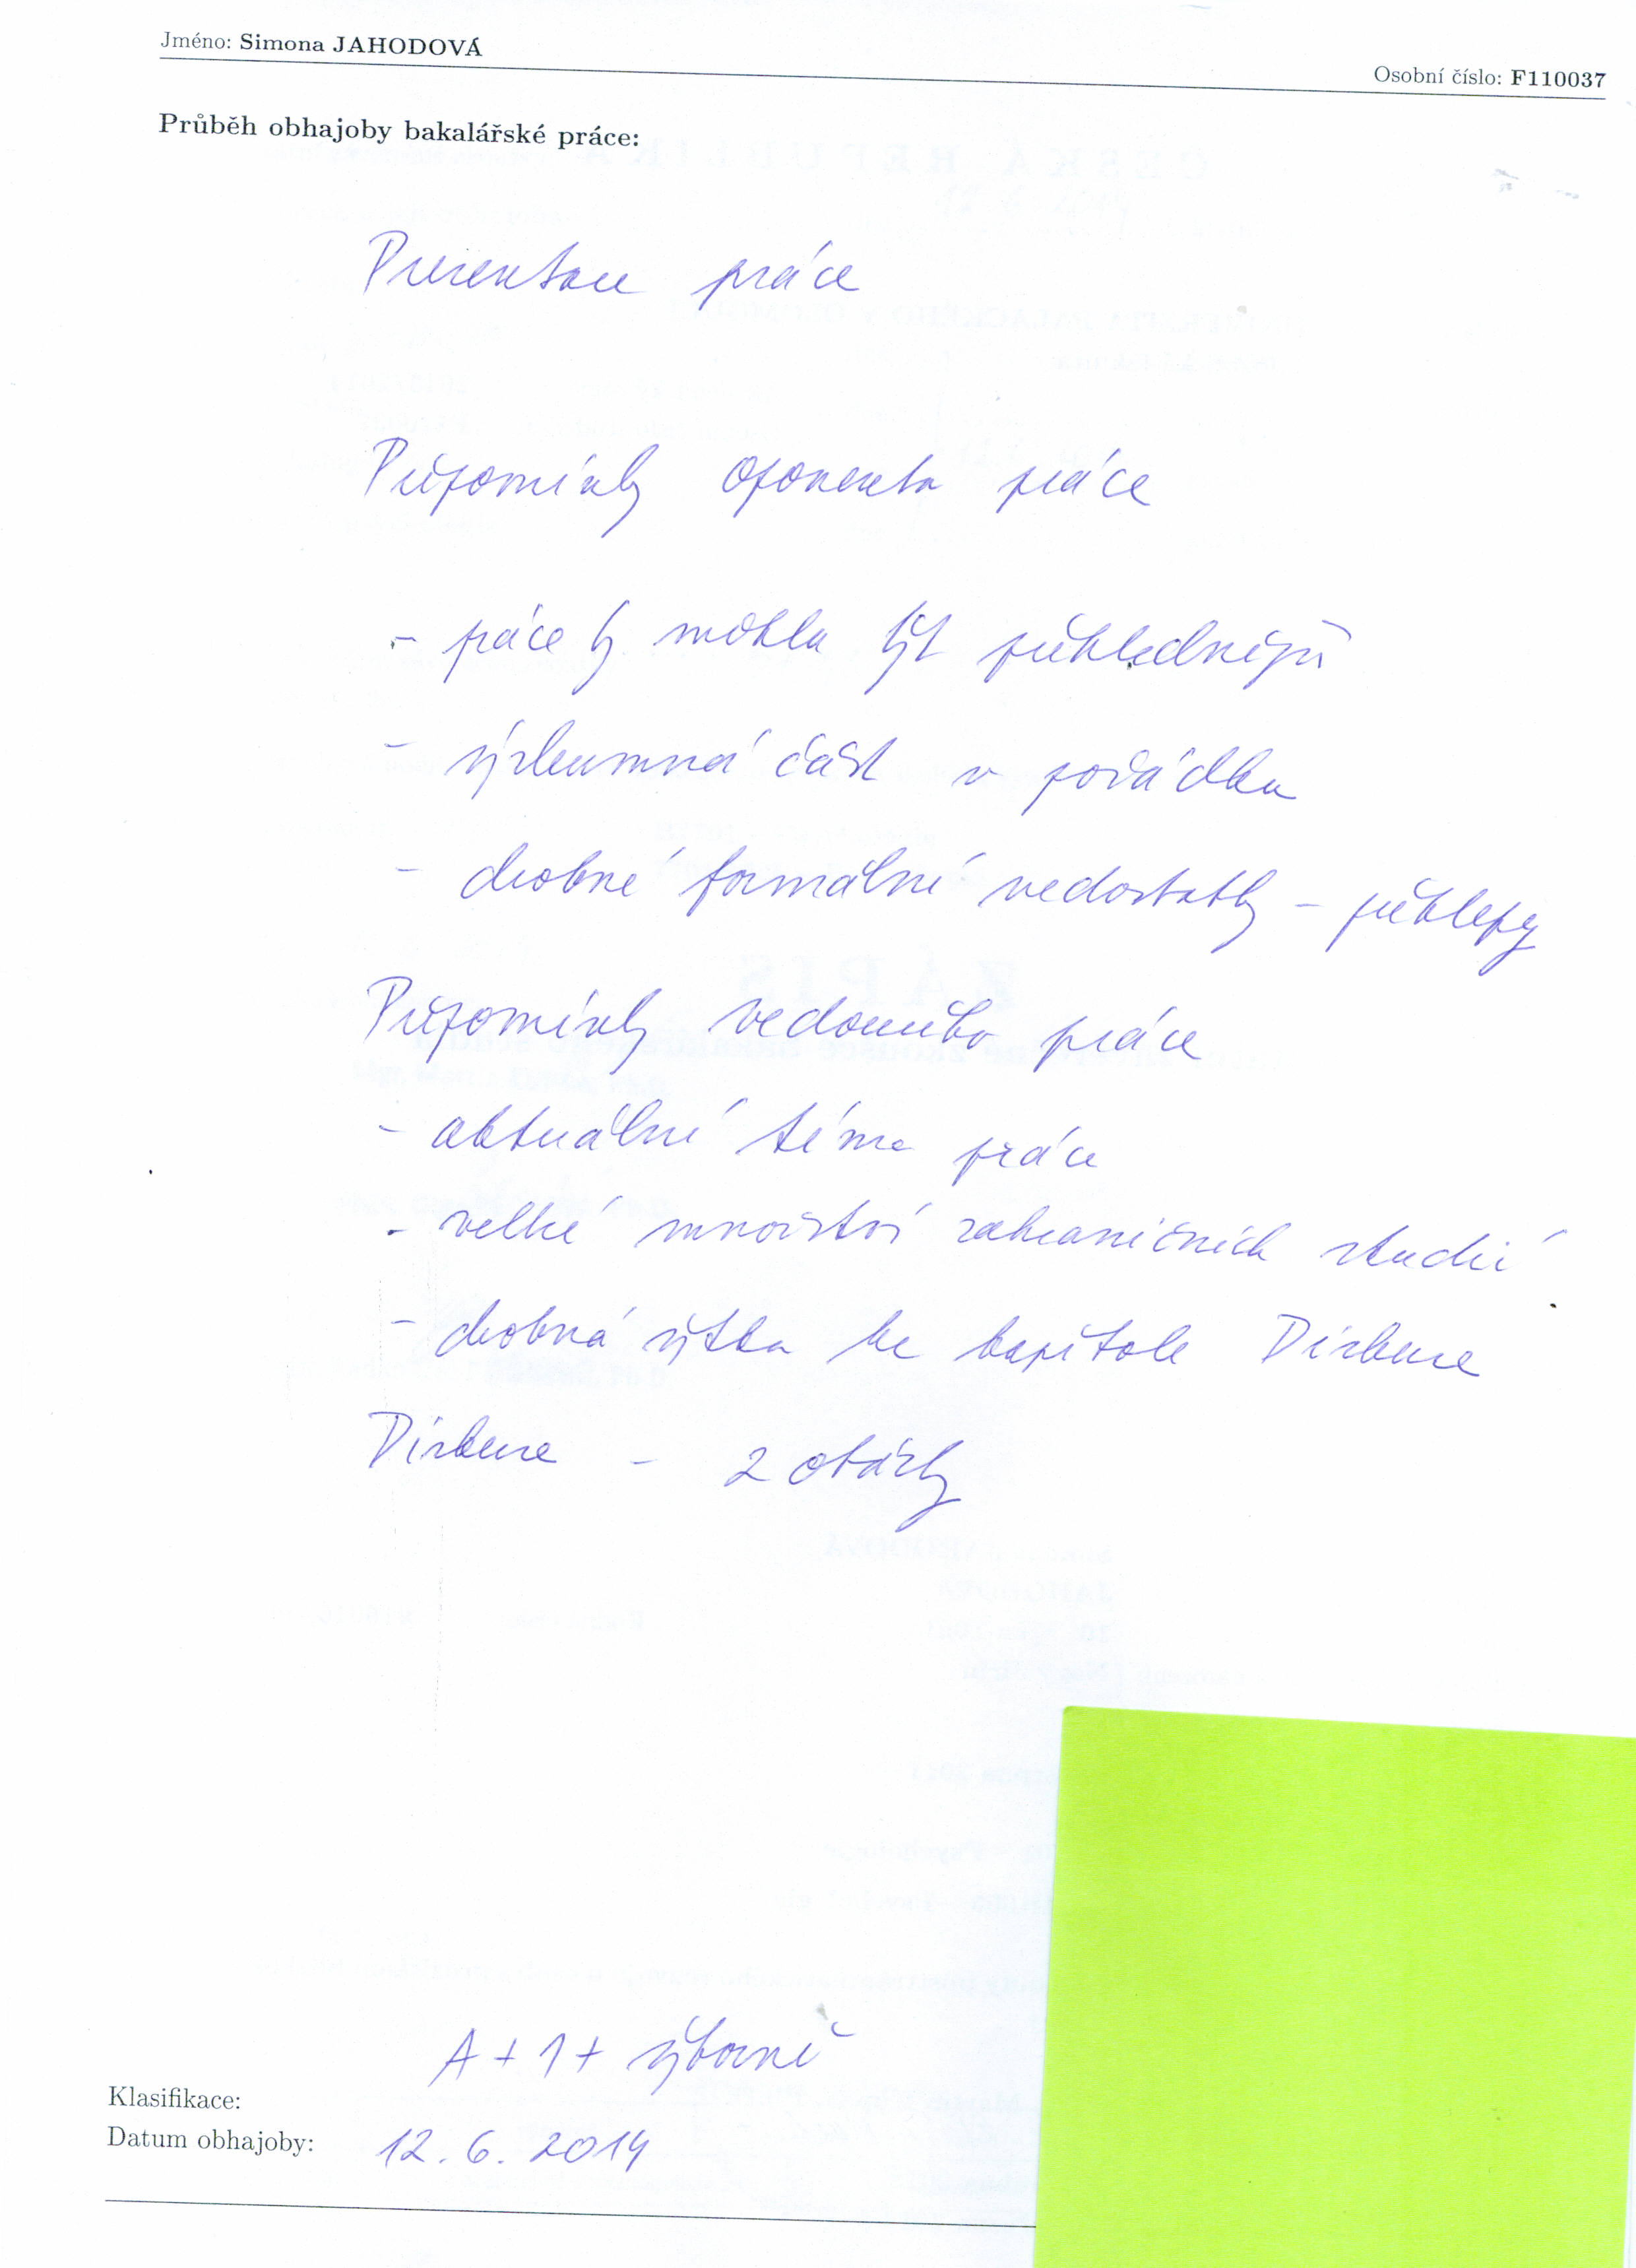 Jméno: Simona JAHODOVÁ
Osobní číslo: F110037
Průběh obhajoby bakalářské práce:
Prezentace práce
Připomínky oponenta práce
- práce by mohla být přehlednější
- výzkumná část v pořádku
- drobné formální nedostatky - překlepy
Připomínky vedoucího práce
- aktuální téma práce
- velké množství zahraničních studií
- drobná výtka ke kapitole Diskuse
Diskuse - 2 otázky
A + 1 + výborně
Klasifikace:
Datum obhajoby: 12. 6. 2014